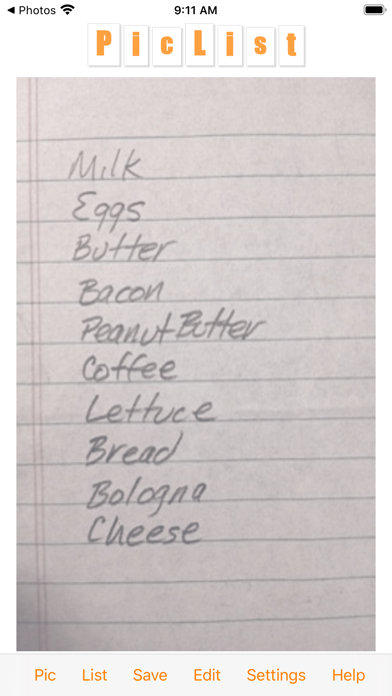 Photos 9:11 AM
PicList
Milk
Eggs
Butter
Bacon
Peanut Butter
Coffee
Lettuce
Bread
Bologna
Cheese
Pic List Save Edit Settings Help